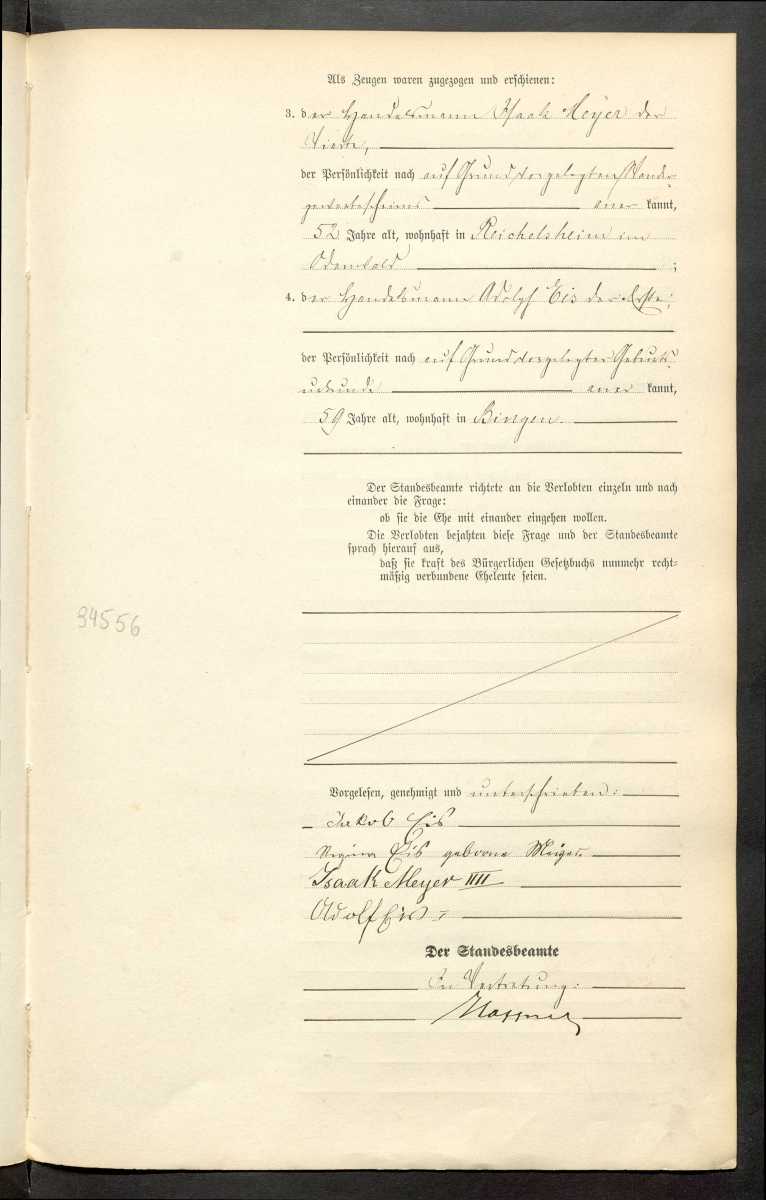 Als Zeugen waren zugezogen und erschienen:
3. der Handelsmann Isaak Meyer der
Vierte,
der Persönlichkeit nach auf Grund vorgelegten Wander-
gewerbescheins anerkannt,
52 Jahre alt, wohnhaft in Reichelsheim im
Odenwald ;
4. der Handelsmann Adolf Eis der Erste,
der Persönlichkeit nach auf Grund vorgelegter Geburts
urkunde anerkannt,
59 Jahre alt, wohnhaft in Bingen.
Der Standesbeamte richtete an die Verlobten einzeln und nach
einander die Frage:
ob sie die Ehe mit einander eingehen wollen.
Die Verlobten bejahten diese Frage und der Standesbeamte
sprach hierauf aus,
daß sie kraft des Bürgerlichen Gesetzbuchs nunmehr recht-
mäßig verbundene Eheleute seien.
34556
Vorgelesen, genehmigt und unterschrieben:
Jakob Eis
Eis geborne
Isaak Meyer IIII
Adolf Eis I
Der Standesbeamte
In Vertretung: